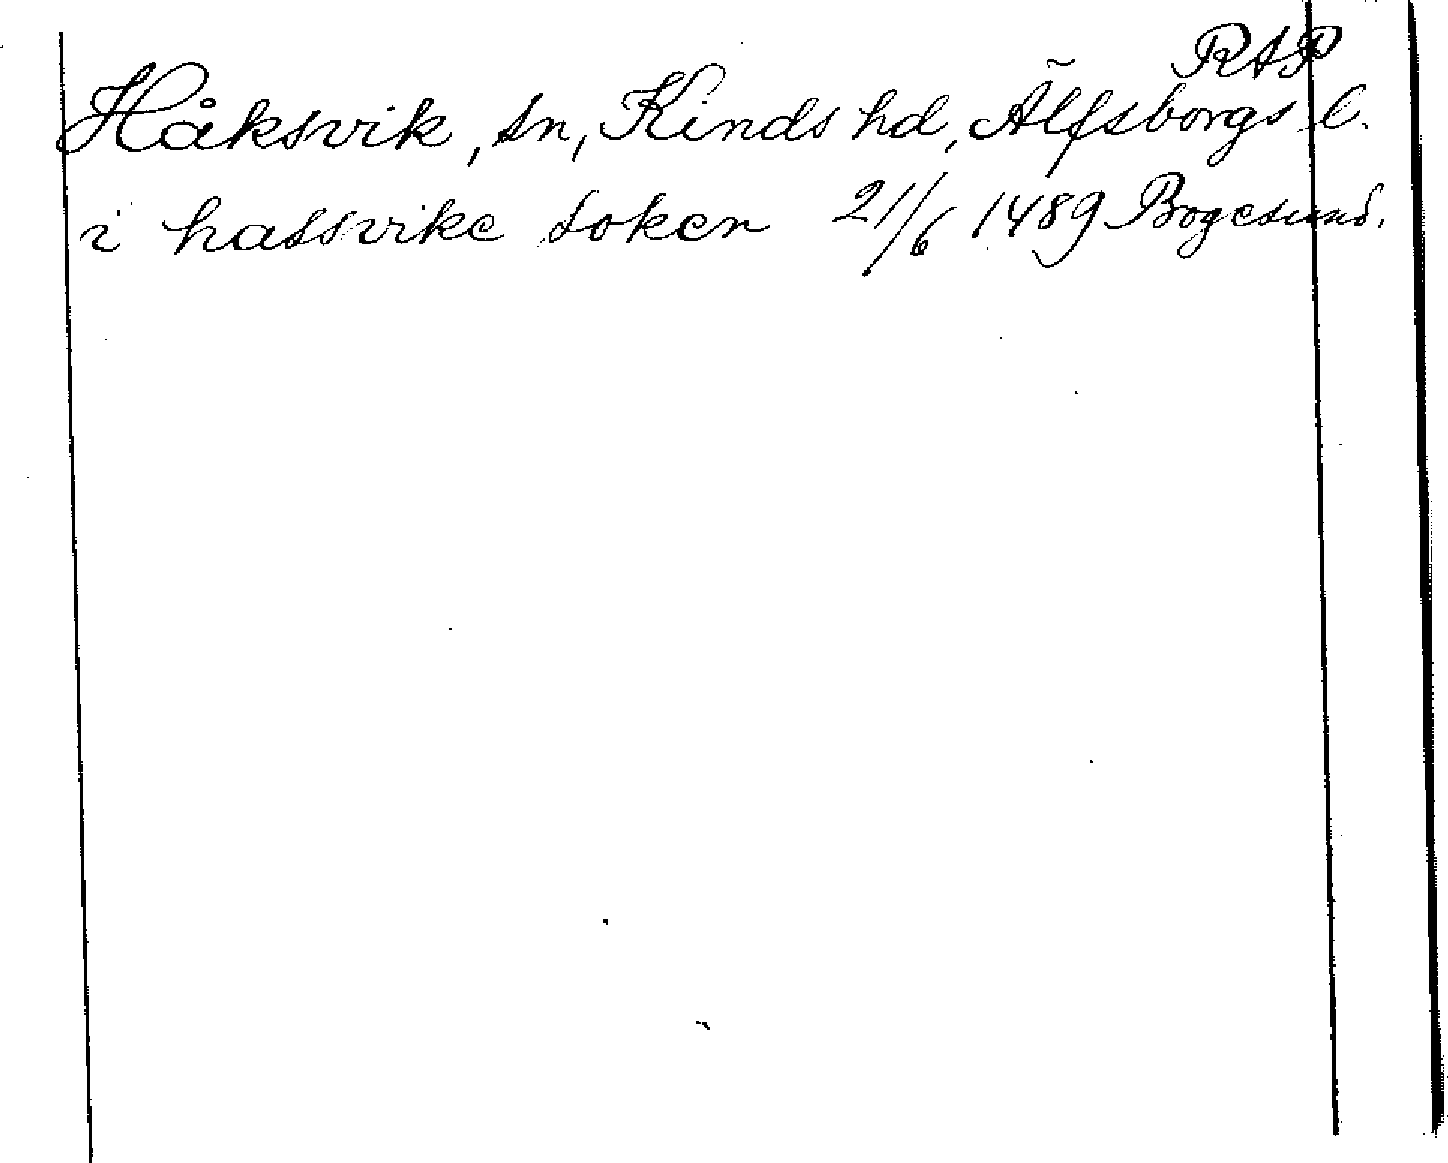 RAP
Håksvik, sn, Kinds hd, Älfsborgs l.
i hassvike soken 21/6 1489 Bogesund.